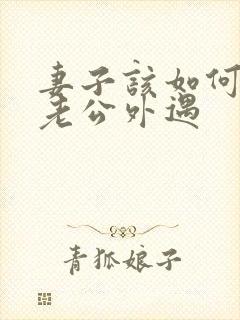 妻子該如何
老公外遇
青狐娘子